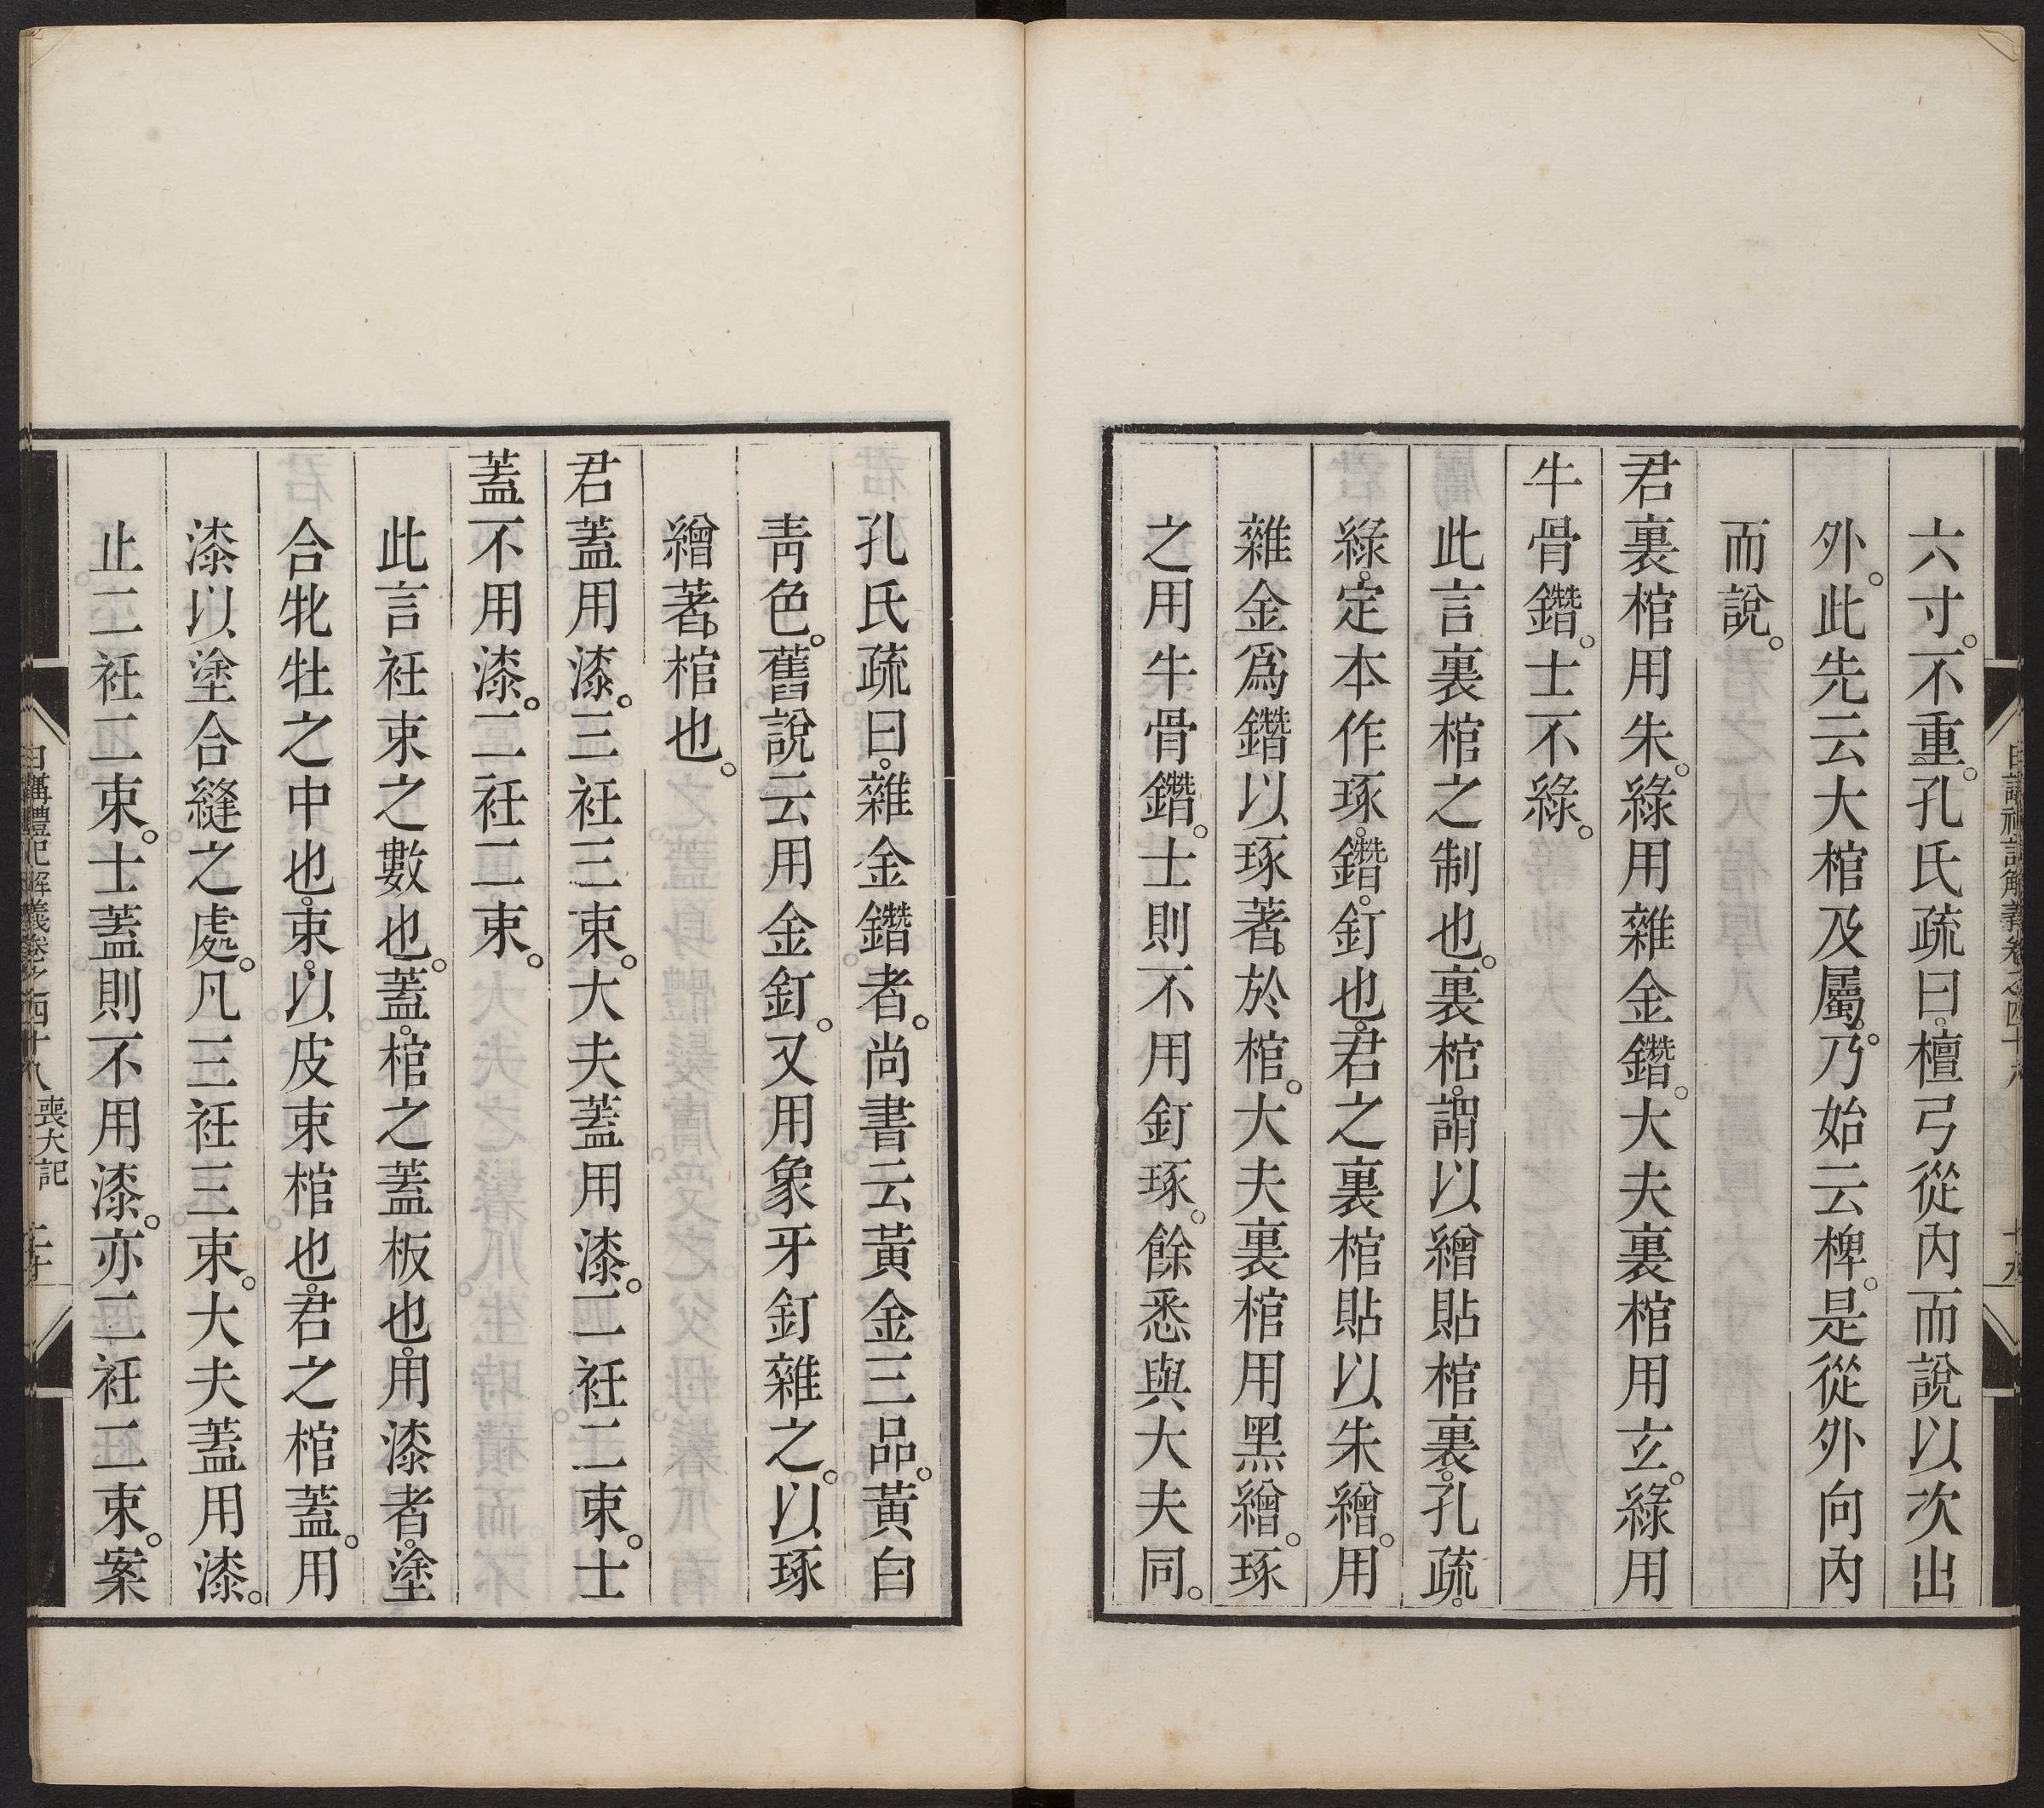 六寸。不重。孔氏疏曰。檀弓從內而說以次出
外。此先云大棺及屬。乃始云椑。是從外向內
而說。
君裏棺用朱。綠用雜金鐕。大夫裏棺用玄。綠用
牛骨鐕。士不綠。
此言裏棺之制也。裏棺。謂以繒貼棺裏。孔疏。
綠。定本作琢。鐕。釘也。君之裏棺貼以朱繒。用
雜金爲鐕以琢著。於棺。大夫裏棺用黑繒。琢
之用牛骨鐕。士則不用釘琢。餘悉與大夫同。
孔氏疏曰。雜金鐕者。尚書云黃金三品。黃白
靑色。舊說云用金釘。又用象牙釘雜之。以琢
繒著。棺也。
君蓋用漆。三衽三束。大夫蓋用漆。二衽二束。士
蓋不用漆。二衽二束。
此言衽束之數也。蓋。棺之蓋板也。用漆者。塗
合牝牡之中也。束。以皮束棺也。君之棺蓋。用
漆以塗合縫之處。凡三衽三束。大夫蓋用漆。
止二衽二束。士蓋則不用漆。亦二衽二束。案
日講禮記解義卷之四十八 喪大記